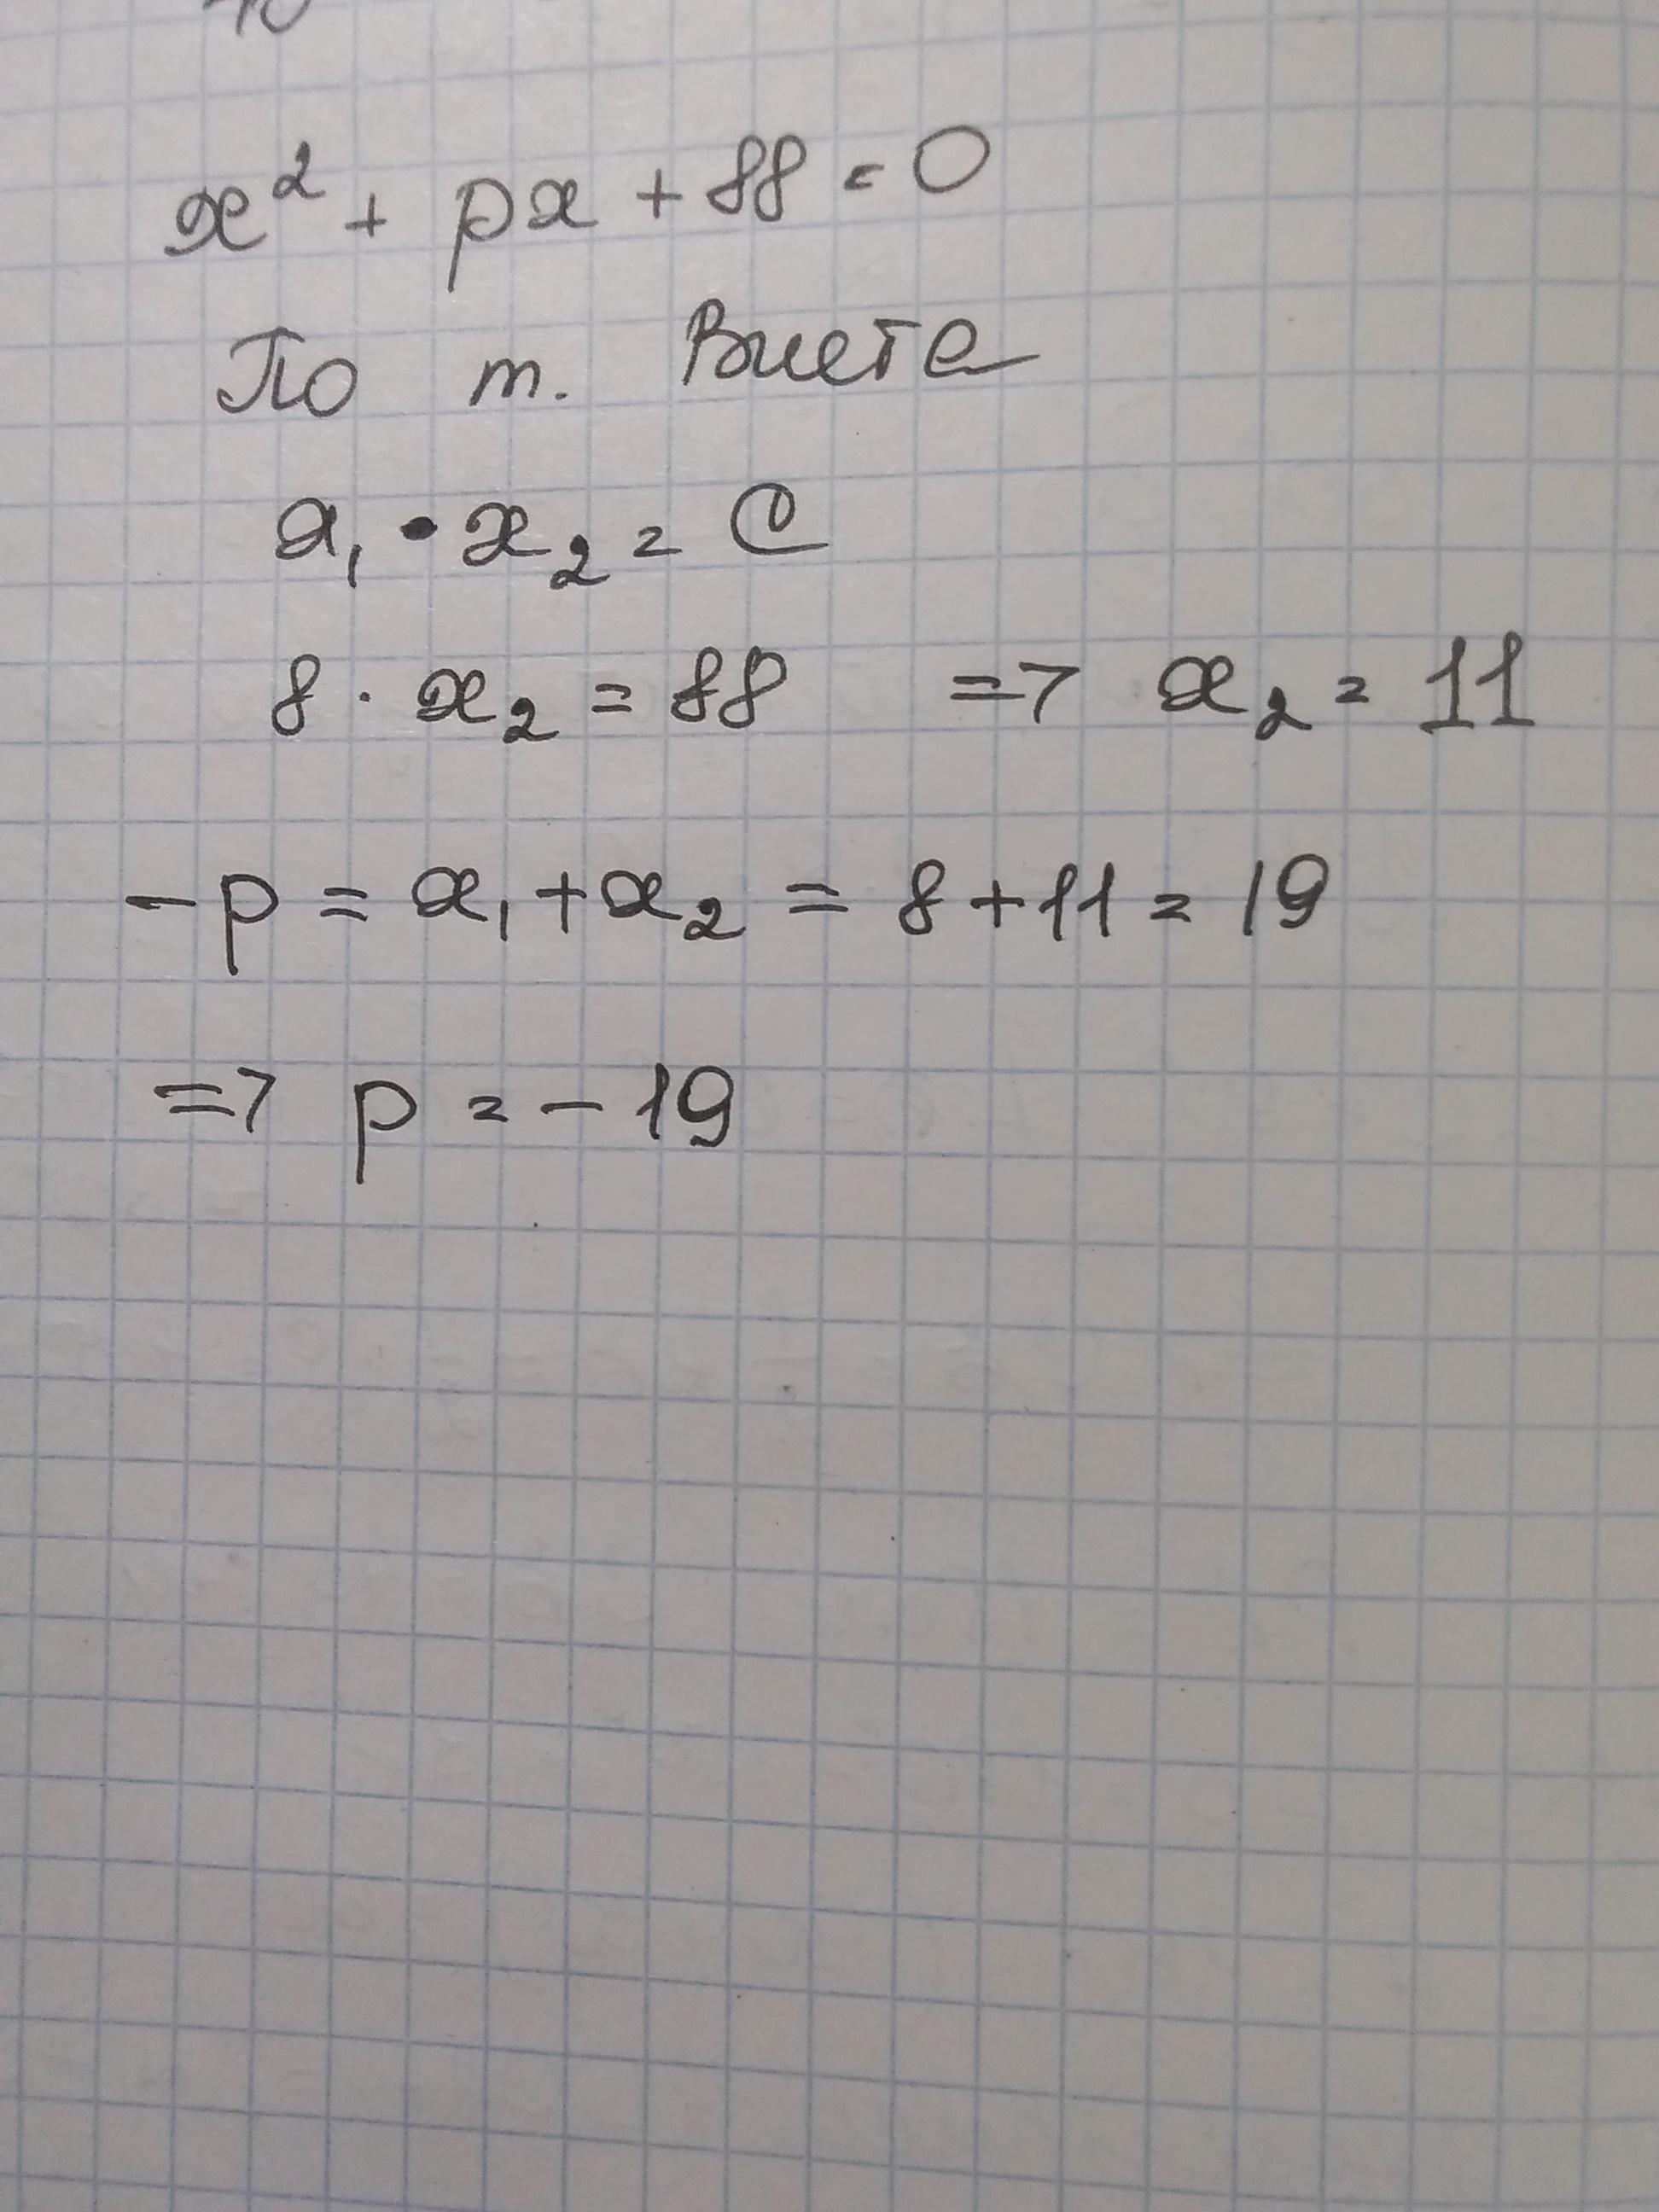 x² + px + 88 = 0
По т. Виета
x₁ • x₂ = c
8 · x₂ = 88 => x₂ = 11
-p = x₁ + x₂ = 8 + 11 = 19
=> p = -19